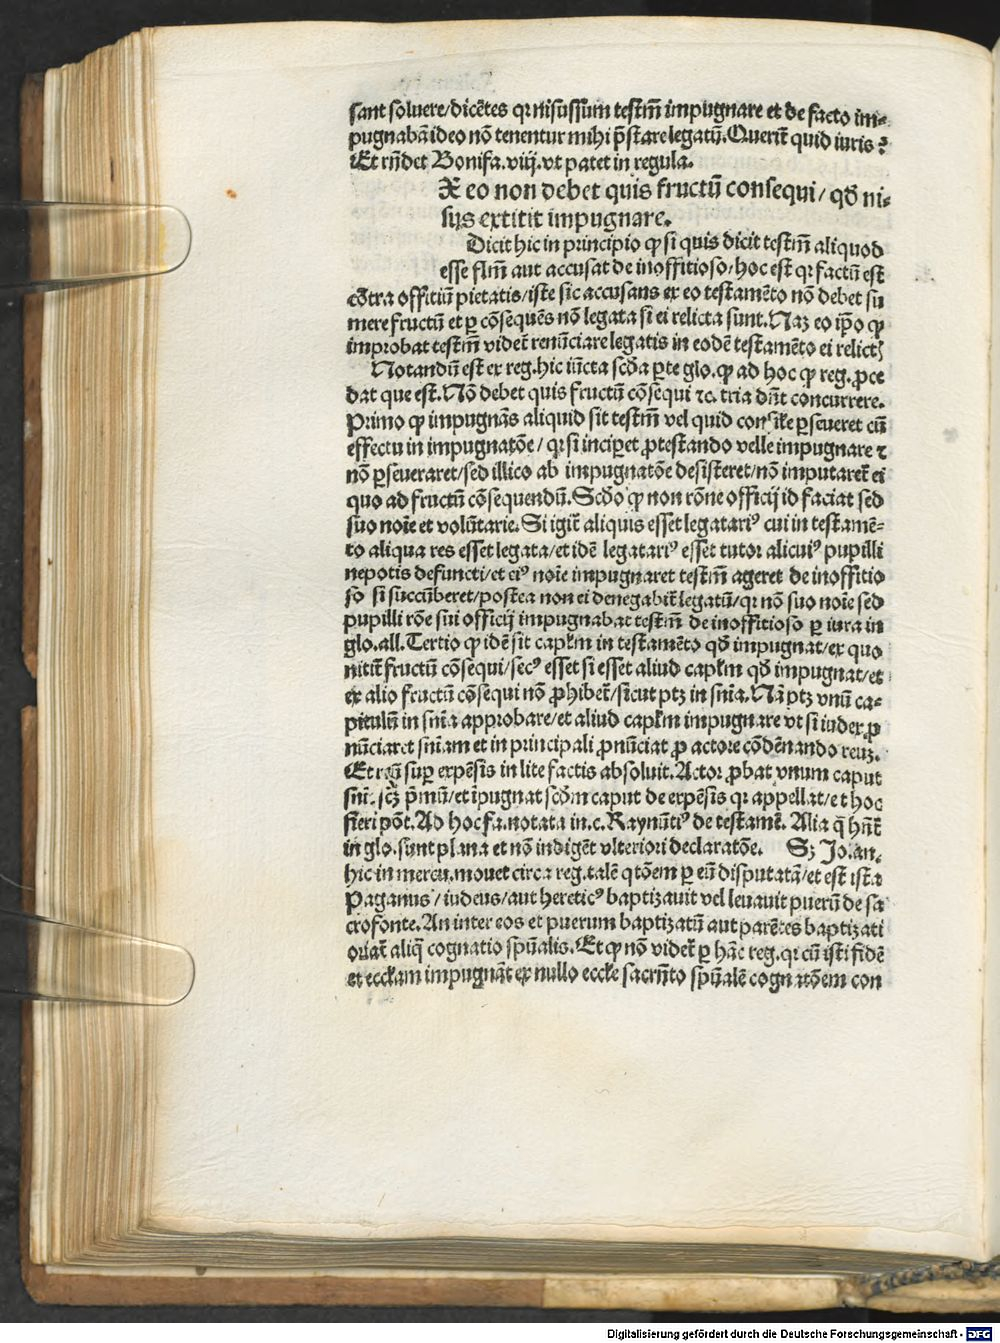 sant soluere/dicētes qꝛ nisus sum testm̄ impugnare et de facto im⸗
pugnabā ideo nō tenentur mihi p̄stare legatū. Querit̄ quid iuris?
Et rn̄det Bonifa. viij. vt patet in regula.
X eo non debet quis fructū consequi/ qð ni⸗
sus extitit impugnare.
Dicit hic in principio ꝙ si quis dicit testm̄ aliquod
esse flm̄ aut accusat de inoffitioso/ hoc est qꝛ factū est
cōtra offitiū pietatis/ iste sic accusans ex eo testamēto nō debet su
mere fructū et ꝑ cōsequēs nō legata si ei relicta sunt. Naꝫ eo ip̄o ꝙ
improbat testm̄ videt̄ renūciare legatis in eodē testamēto ei relict̄
Notandū est ex reg. hic iūcta scḋa ꝑte glo. ꝙ ad hoc ꝙ reg. ꝓce
dat que est. Nō debet quis fructū cōsequi ⁊c. tria dn̄t concurrere.
Primo ꝙ impugnās aliquid sit testm̄ vel quid consil̄e ꝑseueret cū
effectu in impugnatōe/ qꝛ si inciperet ꝓtestando velle impugnare ⁊
nō ꝑseueraret/ sed illico ab impugnatōe desisteret/ nō imputaret̄ ei
quo ad fructū cōsequendū. Scḋo ꝙ non rōne officij id faciat sed
suo noīe et volūtarie. Si igit̄ aliquis esset legatariꝰ cui in testamē⸗
to aliqua res esset legata/ et idē legatariꝰ esset tutor alicuiꝰ pupilli
nepotis defuncti/ et eiꝰ noīe impugnaret testm̄ ageret de inoffitio
so si succūberet/ postea non ei denegabit̄ legatū/ qꝛ nō suo noīe sed
pupilli rōe sui officij impugnabat testm̄ de inoffitioso ꝑ iura in
glo. all. Tertio ꝙ idē sit capl̄m in testamēto qð impugnat/ ex quo
nitit̄ fructū cōsequi/ secꝰ esset si esset aliud capl̄m qð impugnat/ et
ex alio fructū cōsequi nō ꝓhibet̄/ sicut ptꝫ in sn̄ia. Nā ptꝫ vnū ca⸗
pitulū in sn̄ia approbare/ et aliud capl̄m impugnare vt si iudex ꝓ
nūciaret sn̄iam et in principali ꝓnūciat ꝓ actore cōdēnando reuꝫ.
Et reū suꝑ expēsis in lite factis absoluit. Actor ꝓbat vnum caput
sn̄ie scꝫ p̄mū/ et īpugnat scḋm caput de expēsis qꝛ appellat/ et hoc
fieri pōt. Ad hoc fa. notata in. c. Raynūtiꝰ de testamē. Alia q̄ hn̄t̄
in glo. sunt plana et nō indigēt vlteriori declaratōe. Sꝫ Jo. an.
hic in mercu. mouet circa reg. talē q̄tōem ꝑ eū disputatā/ et est ista
Paganus/ iudeus/ aut hereticꝰ baptizauit vel leuauit puerū de sa
crofonte. An inter eos et puerum baptizatū aut parētes baptizati
oriat̄ aliq̄ cognatio spūalis. Et ꝙ nō videt̄ ꝑ hāc reg. qꝛ cū isti fidē
et eccl̄am impugnāt ex nullo eccl̄e sacrm̄to spūalē cognatōem con